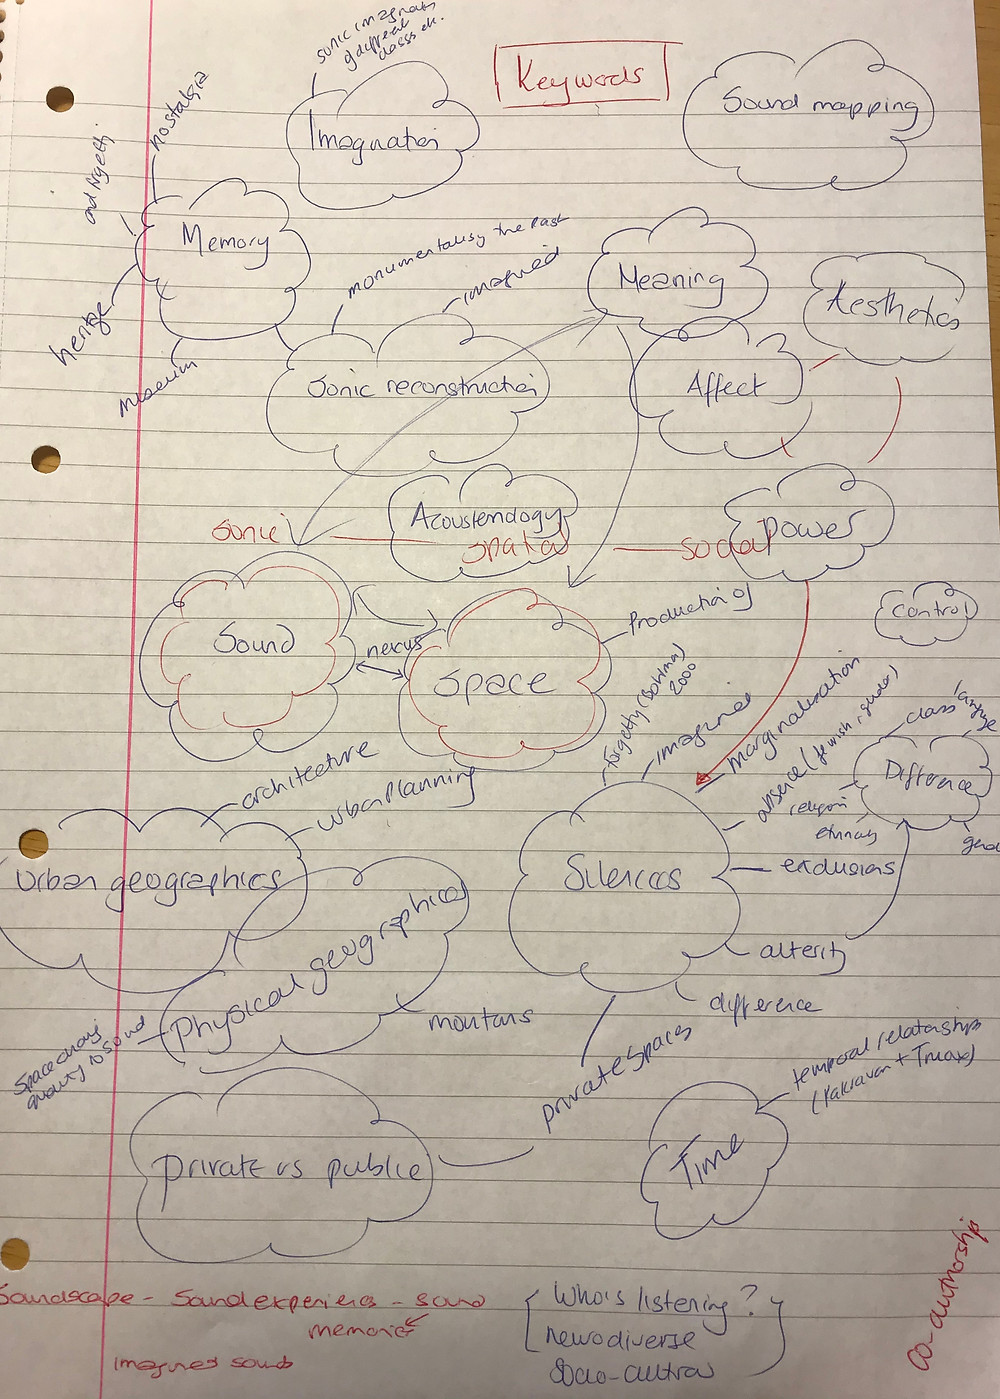 Keywords
sonic imaginary
different
Imagination
Sound mapping
nostalgia
Memory
heritage
museum
monumentalising the past
imagined
Sonic reconstruction
Meaning
Aesthetics
Affect
Sonic
Acoustemology
spatial
social
power
Control
Sound
nexus
Space
Production of
forgetting (Bohlman)
2000
imagined
marginalisation
absence (Jewish, gender)
religion
ethnicity
class
language
Difference
architecture
urban planning
Urban geographies
Physical geographies
mountains
Space changing
quality of sound
Silences
exclusions
alterity
difference
private spaces
private vs public
Time
temporal relationships
(Kakravan + Truax)
Soundscape - Sound experiences - sound
memories
Imagined sounds
Who's listening?
neurodiverse
socio-cultural
co-authorship